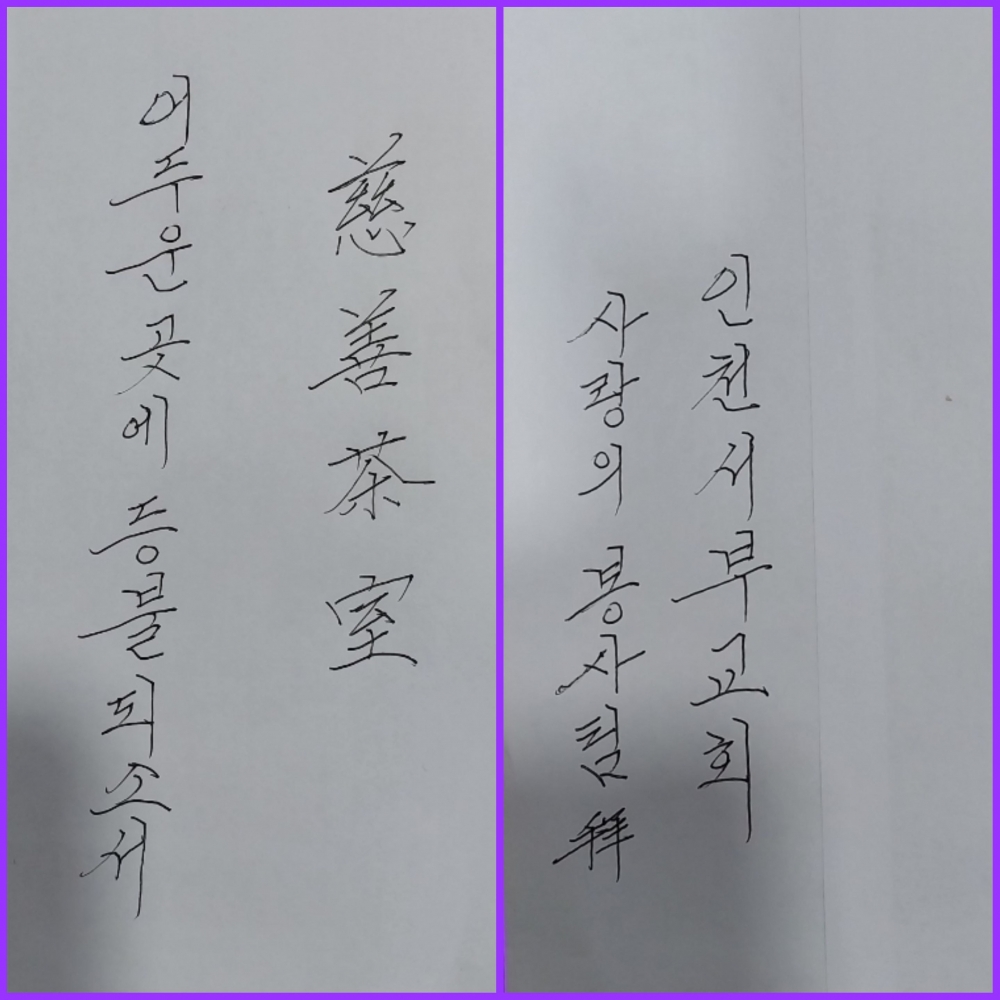 慈善茶室
어두운 곳에 등불되소서
인천서부교회
사랑의 봉사팀